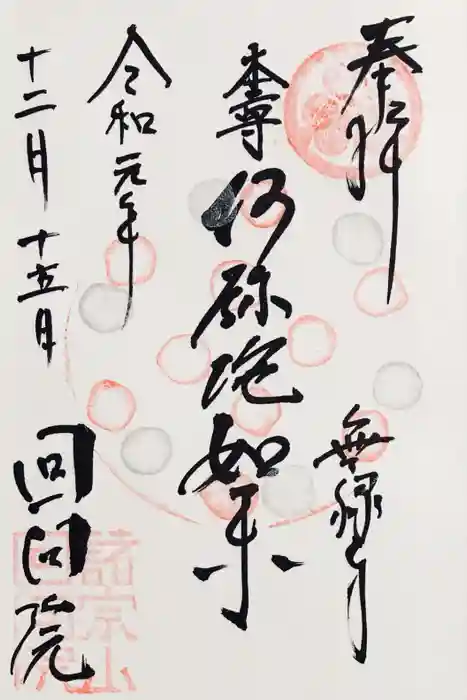 奉拝
無縁寺
本尊
阿弥陀如来
令和元年
十二月十五日
回向院
諸宗山
回向院